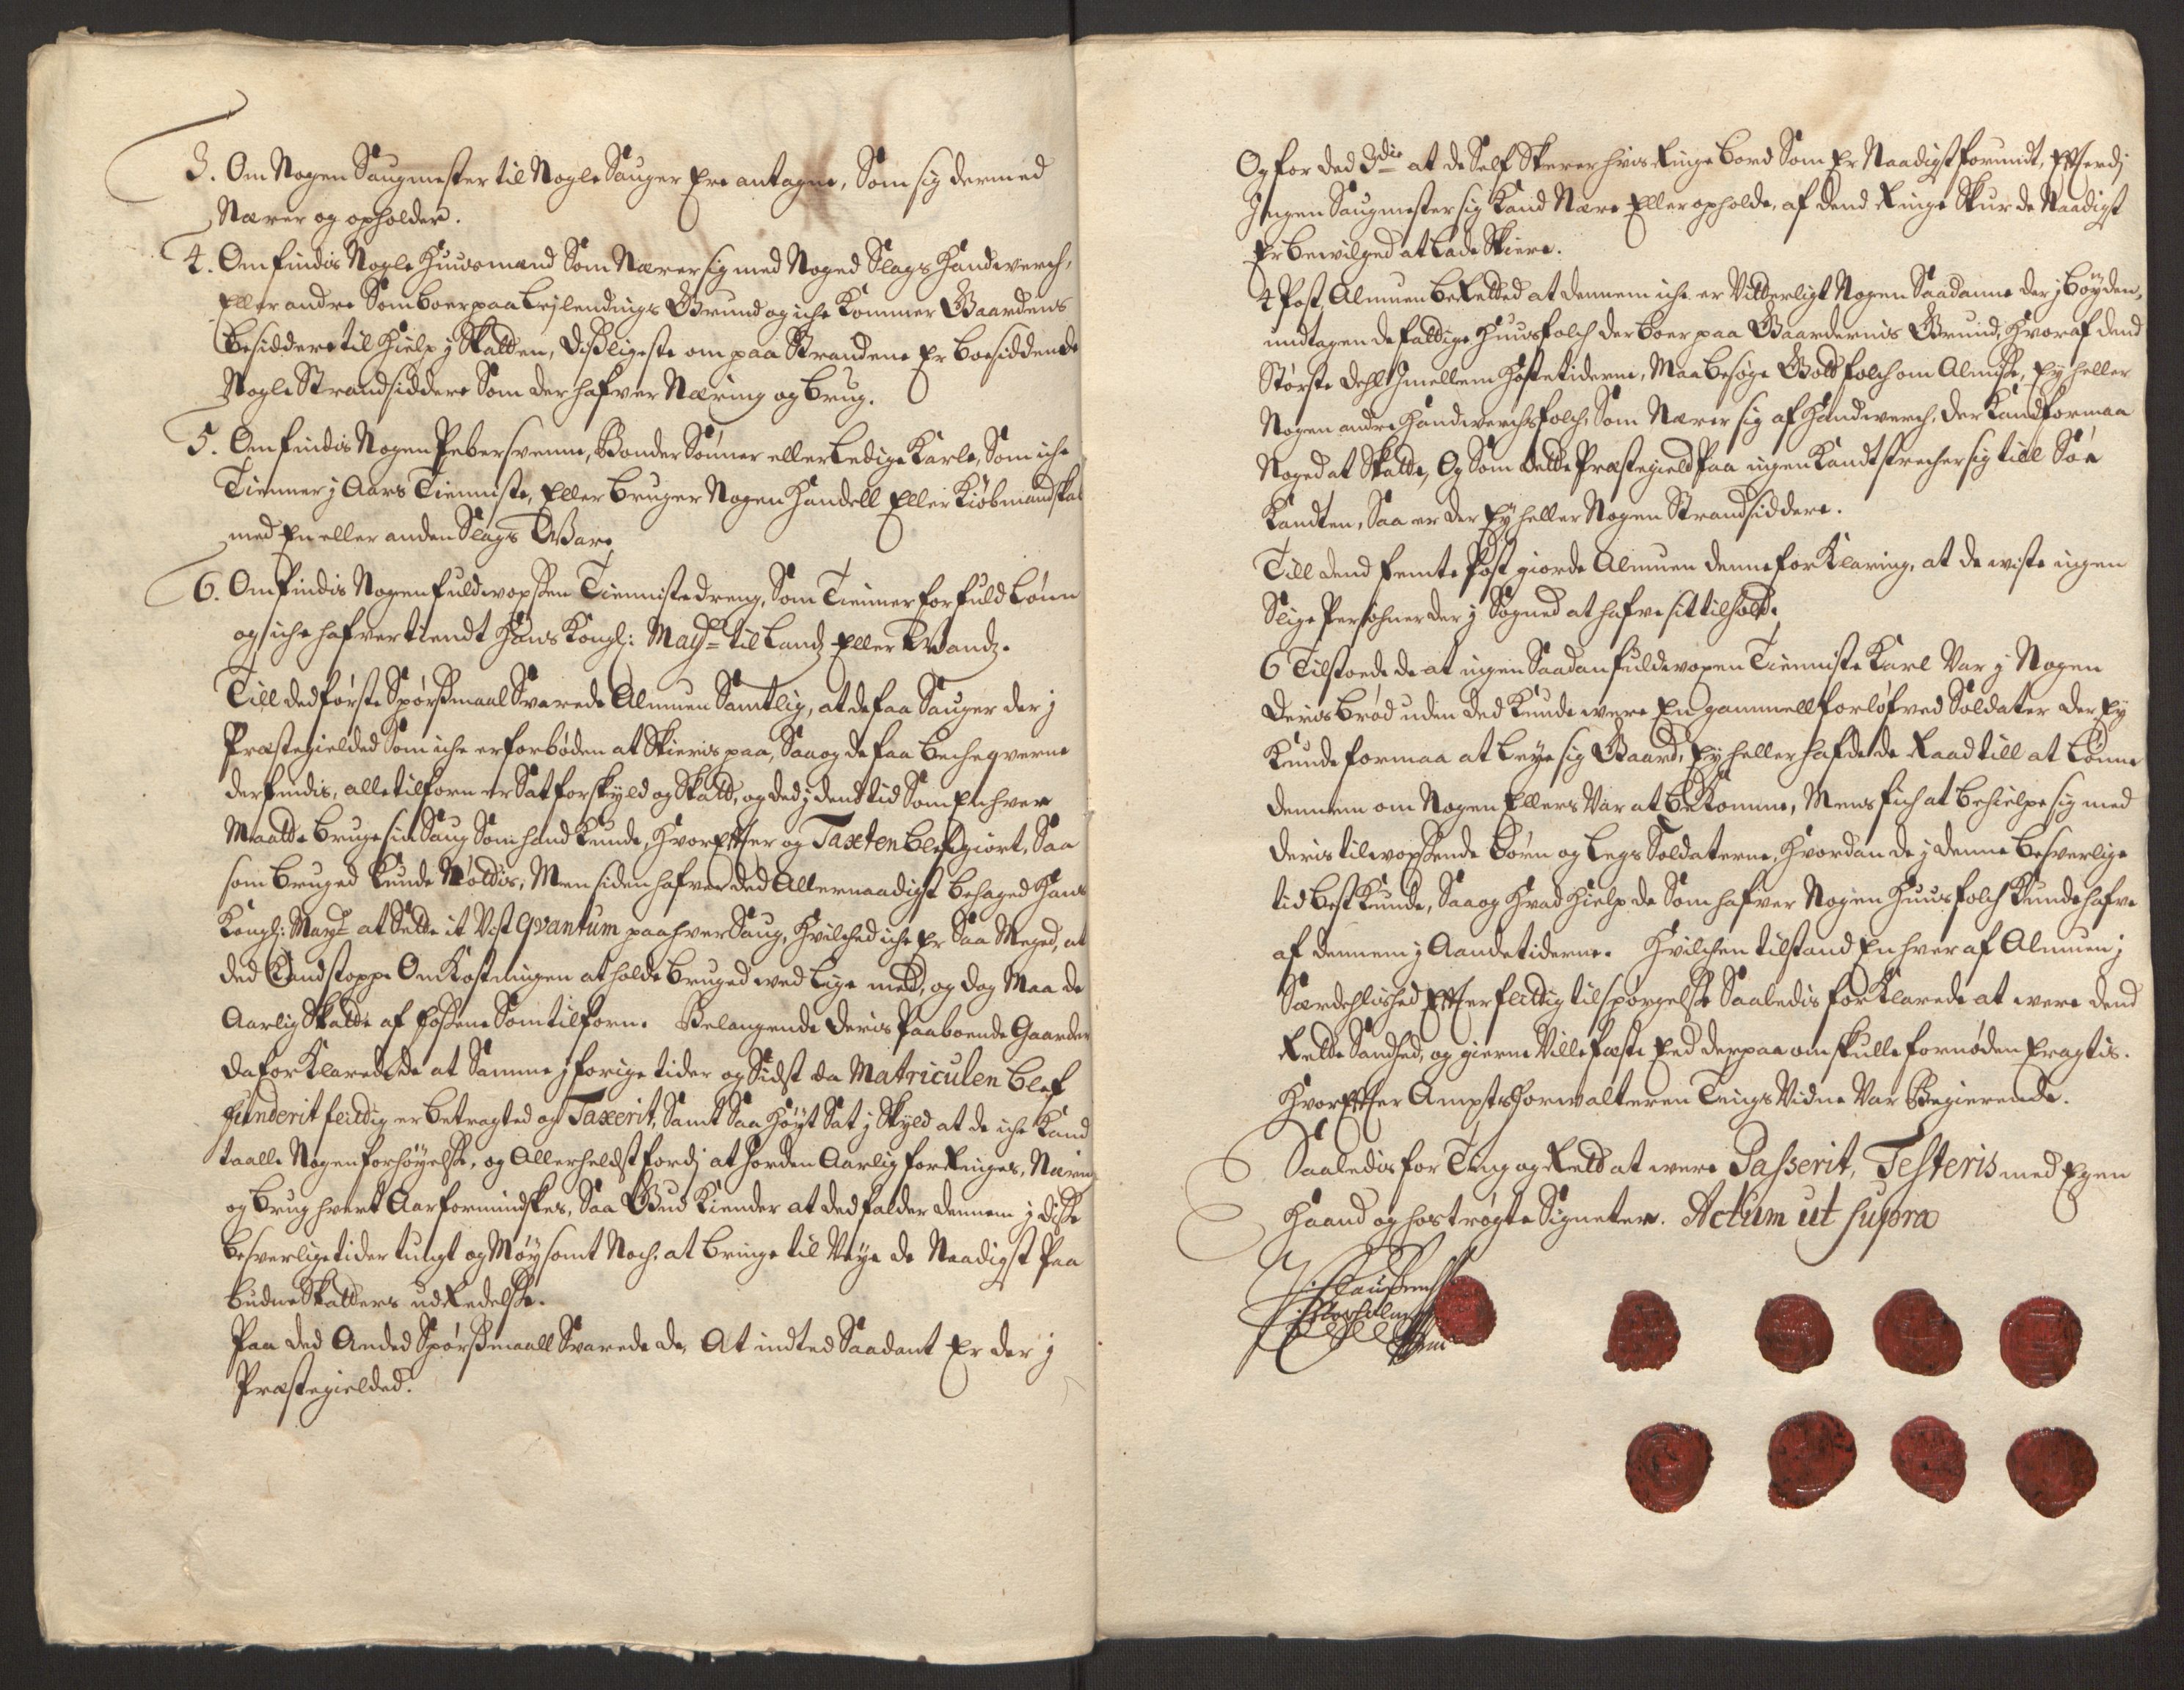 3. Om Nogen Saugmester til Nogle Sauger Ere antagne, Som sig dermed
Nærer og opholder.
4. Om findis Nogle Huusmænd Som Nærer sig med Noged Slags Handtverch,
Eller andre Som boer paa Leylendings Grund og iche kommer Gaardens
besiddere til Hielp j Skatten, disligeste om paa Strandene Er boesiddende
Nogle Strandsiddere Som der hafver Næring og brug.
5. Om findis Nogen Pebersvenne, Bonder Sønner eller Ledige Karle, Som iche
Tienner j Aars Tienniste, Eller bruger Nogen Handell Eller Kiøbmandskab
med En eller anden Slags Ware,
6. Om findis Nogen fuldvopsen Tiennistedreng, Som Tienner for fuld Lønn
og iche hafver tiendt Hans Kongl: May:ts til Landz Eller Wandz.
Till ded første Spørsmaal Svarede Almuen Samtlig, at de faa Sauger der j
Præstegielded Som iche er forbøden at Skieris paa, Saa og de faa bechequerne
der findis, alle tilforn er Sat for skyld og Skatt, og ded j dend tid Som Enhver
Maatte bruge sin Saug Som hand kunde, Hvorefter og Taxten blef giort, Saa
som bruged kunde Nøttis, Men siden hafver ded Allernaadigst behaged Hans
Kongl: May:t at Sette it Vist Qvantum paa hver Saug, Hvilched iche Er Saa Meged, at
ded kand stoppe Omkostningen at holde bruged ved lige med, og dog Maa de
Aarlig Skatte af fossene Som tilforn. Belangende deris Paaboende Gaarder
da forklarede de at Samme j forige tider og Sidst da Matriculen blef
funderit flittig er betragted og Taxerit, Samt Saa Høyt Sat j Skyld at de iche kand
taalle Nogen forhøyelse, og Allerheldst fordj at Jorden Aarlig forringes, Næring
og brug hvert Aar formindskes, Saa Gud kiender at ded falder dennem j disse
besverlige tider tungt og Møysomt Noch, at bringe til Veye de Naadigst Paa
budne Skatters udredelse.
Paa ded Anded Spørsmaall Svarede de, At indted Saadant Er der j
Præstegielded.
Og for ded 3die at de Self Skærer hvis Ringe bord Som Er Naadigst forundt, Efterdj
Ingen Saugmester sig kand Nære Eller opholde, af dend Ringe Skur de Naadigst
Er bewilged at lade Skiere.
4 Post, Almuen berettede at dennem iche er Vitterligt Nogen Saadanne der j bøyden,
undtagen de fattige Huusfolch der boer paa Gaardernis Grund, Hvoraf dend
Største dehl Imellem Høstetiderne, Maa besøge Gott folch om Almisse, Ey heller
Nogen andre Handverchsfolch, Som Nærer sig af Handverch, der kand formaa
Noged at Skatte, Og Som dette Præstegield Paa ingen kandt strecher sig till Søe
kandten, Saa er der Ey heller Nogen Strandsiddere.
Till dend femte Post giorde Almuen denne forklaring, at de viste ingen
Slige Persohner der j Sogned at hafve sit tilhold,
6 Tilstoede de at ingen Saadan fuldvopen Tienniste Karl Var j Nogen
deris brød uden ded kunde være En gammell forløfved Soldater der Ey
kunde formaa at leye sig Gaard, Ey heller hafde de Raad till at Lønne
dennem om Nogen Ellers Var at bekomme, Mens fich at behielpe sig med
deris tilvoxende børn og Legs Soldaterne, Hvordan de j denne besverlige
tid best kunde, Saa og Hvad Hielp de Som hafver Nogen Huusfolch kunde hafve
af dennem j Aandetiderne. Hvilchen tilstand Enhver af Almuen j
Særdehlished Efter flittig tilspørgelse Saaledis forklarede at være dend
Rette Sandhed, og gierne Ville fæste Eed derpaa om skulle fornøden Eragtis.
Hvorefter Ampts forwalteren Tings Vidne Var Begierende.
Saaledis for Ting og Rett at were Passerit, Testeris med Egen
Haand og hostrøgte Signeter. Actum ut supra